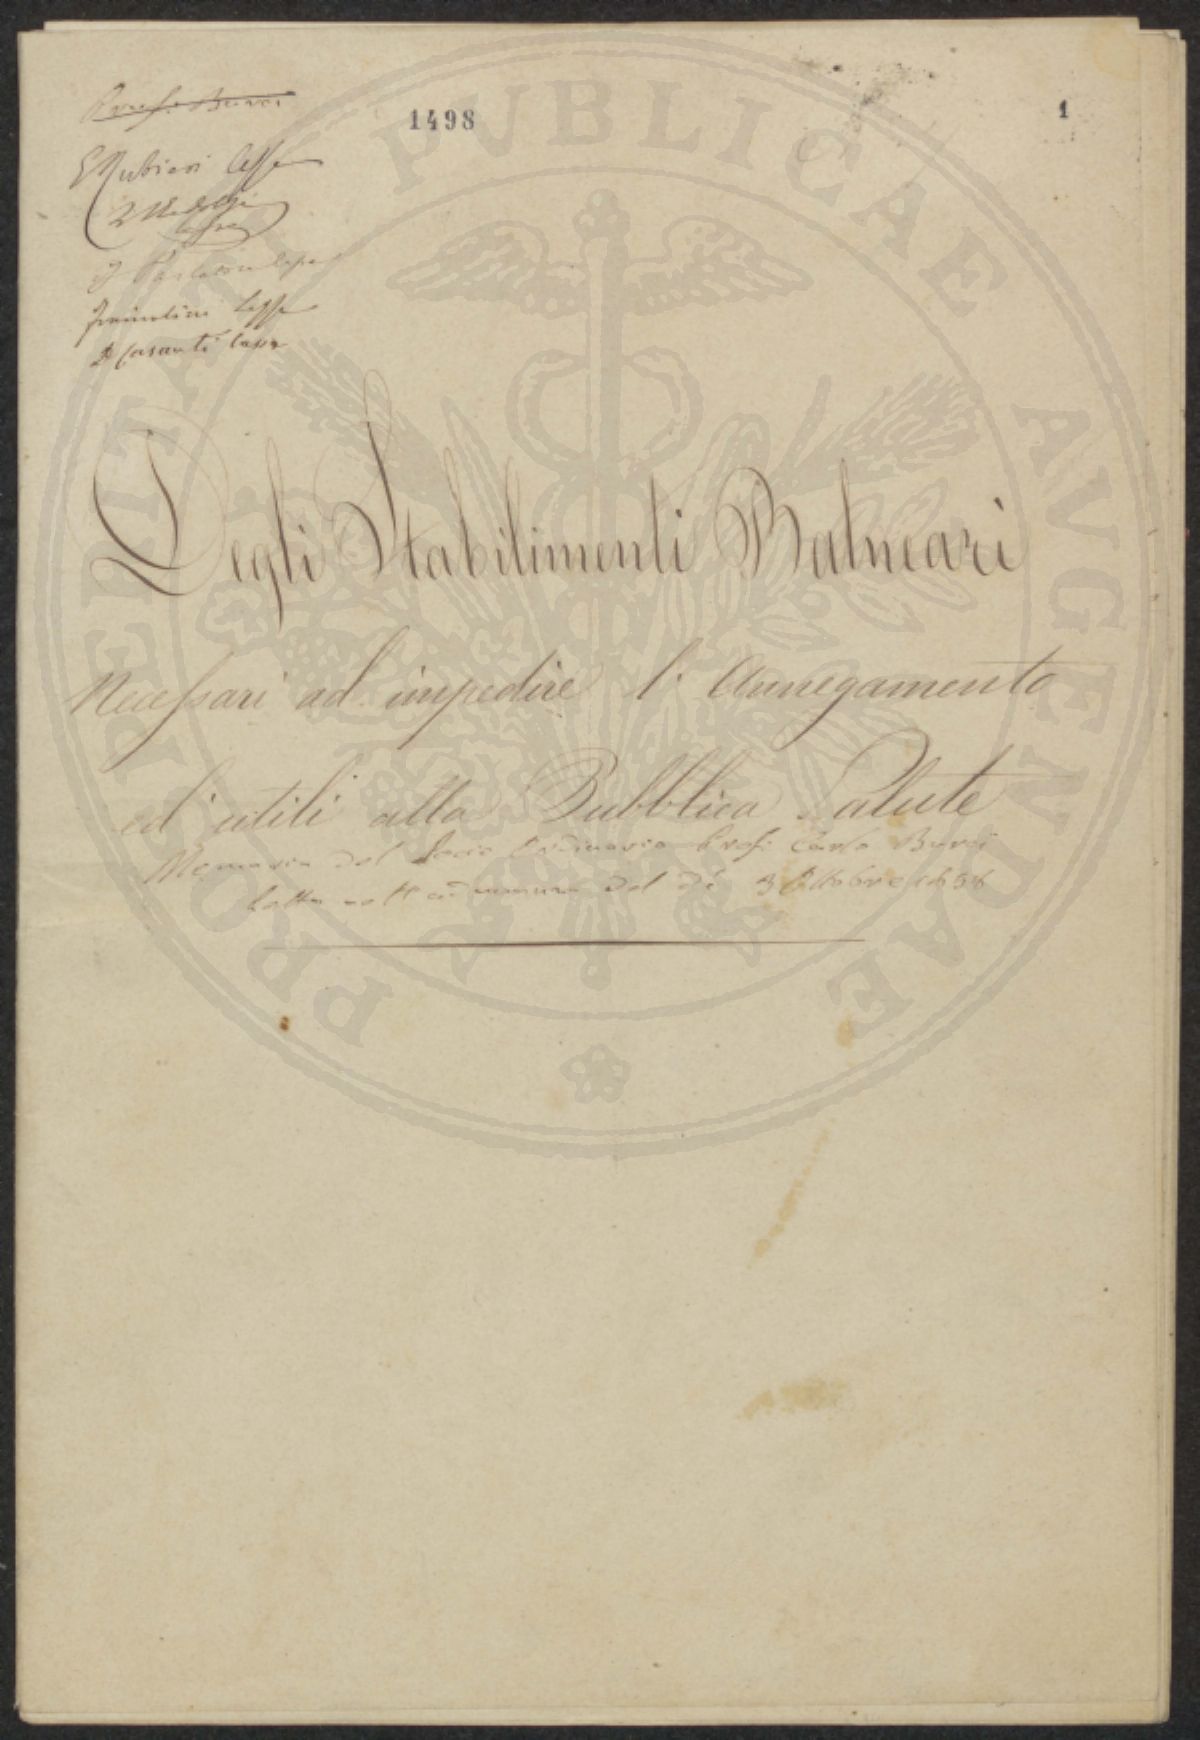 Prof. Burci
1498
1
E Rubieri lesse
lesse
J Parlatore lesse
lesse
D Casanti lesse
Degli Stabilimenti Balneari
Necessari ad impedire l'Annegamento
ed utili alla Pubblica Salute
Memoria del Socio Ordinario Prof. Carlo Burci
Letta nell'adunanza del dì 3 Ottobre 1858
PROSPERITATI PVBLICAE AVGENDAE